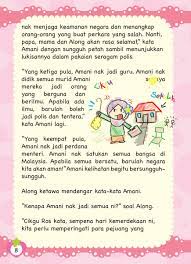 nak menjaga keamanan negara dan menangkap
orang-orang yang buat perkara yang salah. Nanti,
papa, mama dan Along akan rasa selamat," kata
Amani dengan sungguh petah sambil menunjukkan
lukisannya dalam pakaian seragam polis.
"Yang ketiga pula, Amani nak jadi guru. Amani nak
didik semua murid Amani supaya
mereka jadi orang
yang berguna dan
berilmu. Apabila ada
ilmu, barulah boleh
jadi polis dan tentera,"
kata Amani lagi.
"Yang keempat pula,
Amani nak jadi perdana
menteri. Amani nak satukan semua bangsa di
Malaysia. Apabila semua bersatu, barulah negara
kita akan aman!" Amani kelihatan begitu bersungguh-
sungguh.
Along ketawa mendengar kata-kata Amani.
"Kenapa Amani nak jadi semua ni?" soal Along.
"Cikgu Ros kata, sempena hari Kemerdekaan ni,
kita perlu memperingati para pejuang yang
8